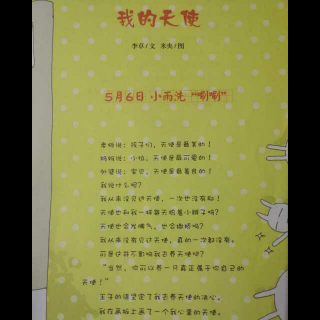 我的天使
李卓/文 朱央/图
5月6日 小雨洗“唰唰”
老师说：孩子们，天使是最美的！
妈妈说：小怡，天使是最可爱的！
外婆说：宝贝，天使是最善良的！
我说什么呢？
我从来没见过天使，一次也没有知！
天使也和我一样每天梳着小辫子吗？
天使也会发脾气，也会做梦吗？
我从来没有见过天使，真的一次都没有。
可是这并不影响我去养天使呀？
“当然，你可以养一只真正属于你自己的
天使！”
王子的话坚定了我去养天使的决心。
我在画板上画了一个我心里的天使。